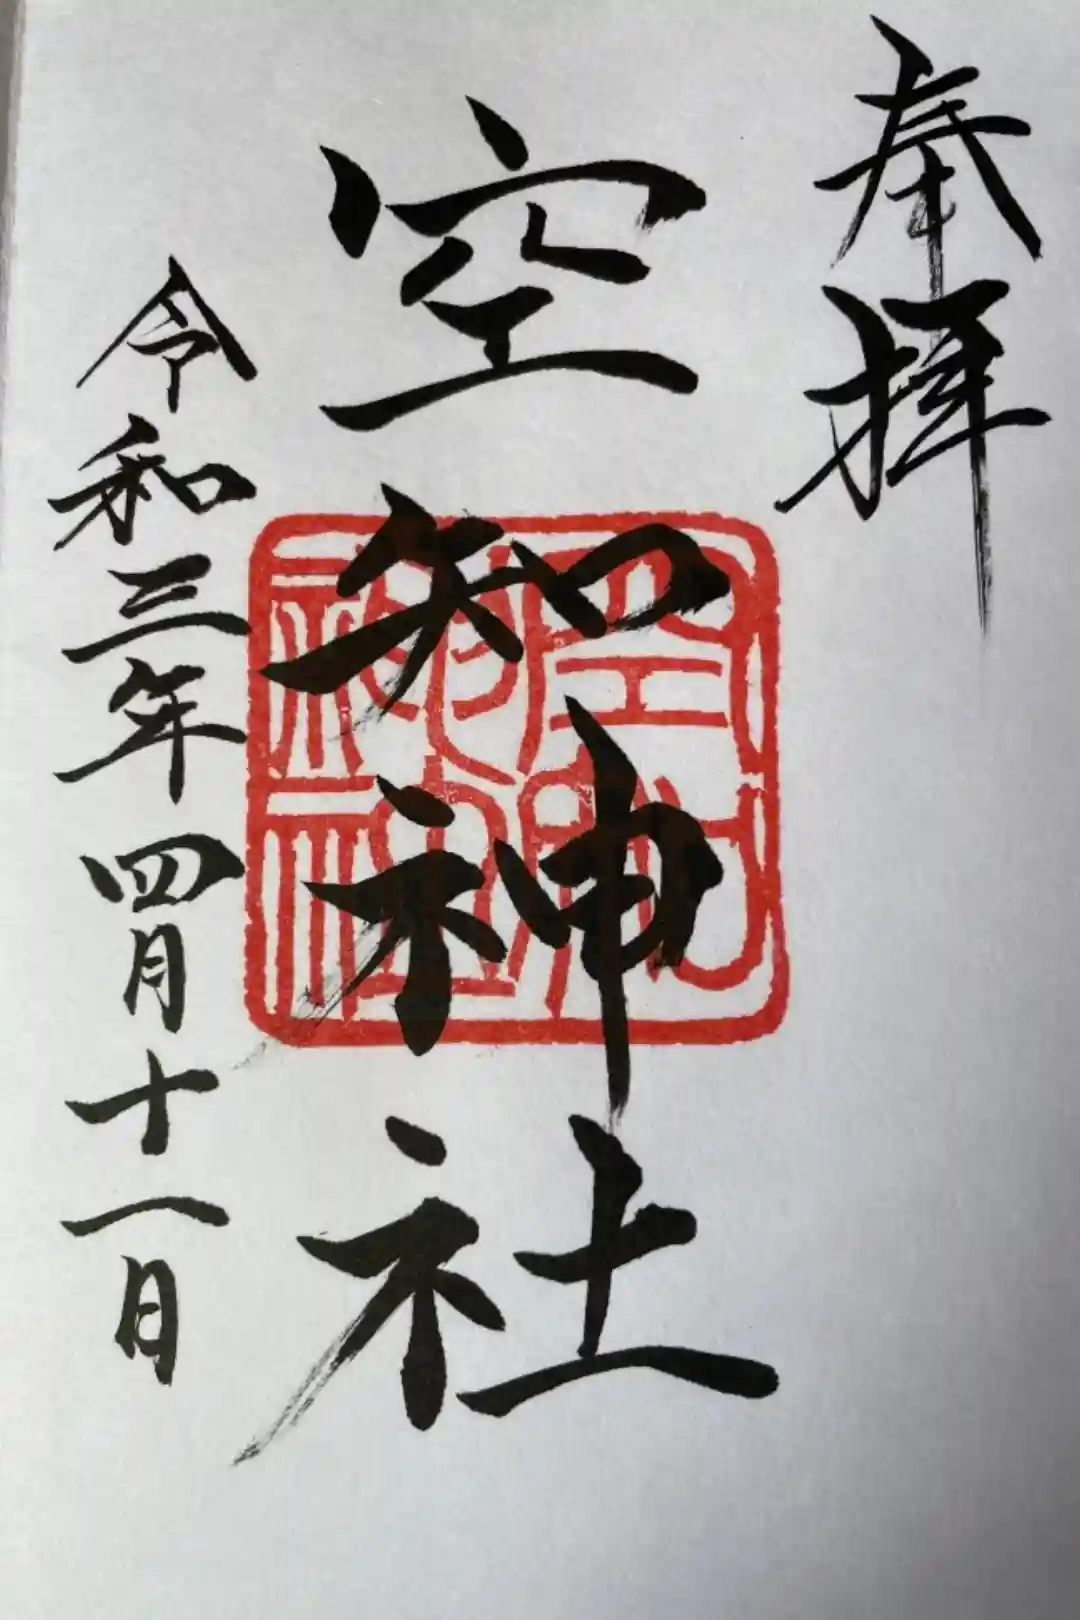 奉拝
空知神社
空知神社
令和三年四月十一日